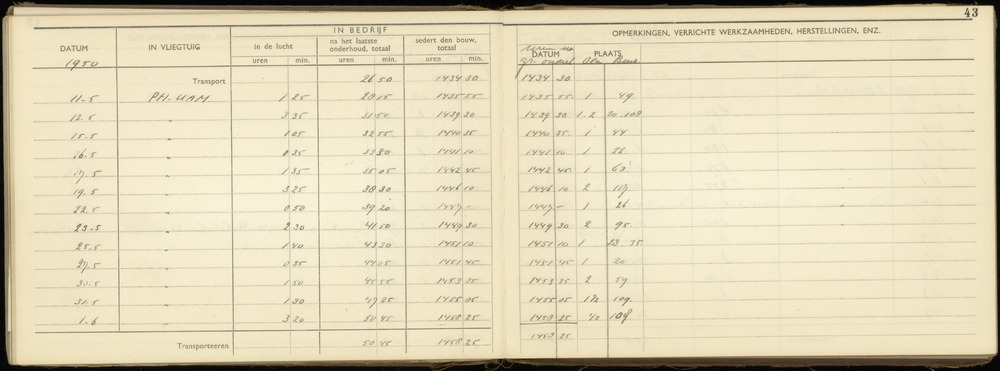 43
IN BEDRIJF
DATUM IN VLIEGTUIG in de lucht na het laatste onderhoud, totaal sedert den bouw, totaal OPMERKINGEN, VERRICHTE WERKZAAMHEDEN, HERSTELLINGEN, ENZ.
1950 uren min. uren min. uren min. DATUM PLAATS
Transport 26 50 1434 30 1434 30
11-5 PH-UAM 1 25 28 15 1435 55 1435 55 1 49
12.5 " 3 35 31 50 1439 30 1439 30 1.2 20.108
15.5 " 1 05 32 55 1440 35 1440 35 1 44
16.5 " 0 35 33 30 1441 10 1441 10 1 22
17.5 " 1 35 35 05 1442 45 1442 45 1
19.5 " 3 25 38 30 1446 10 1446 10 2 117
22.5 " 0 50 39 20 1447 - 1447 - 1 26
23-5 " 2 30 41 50 1449 30 1449 30 2 95
25.5 " 1 40 43 30 1451 10 1451 10 1 35
27.5 " 0 35 44 05 1451 45 1451 45 1 20
30.5 " 1 50 45 55 1453 35 1453 35 2 59
31.5 " 1 30 47 25 1455 05 1455 05 109
1-6 " 3 20 50 45 1458 25 1458 25
Transporteeren 50 45 1458 25 1458 25